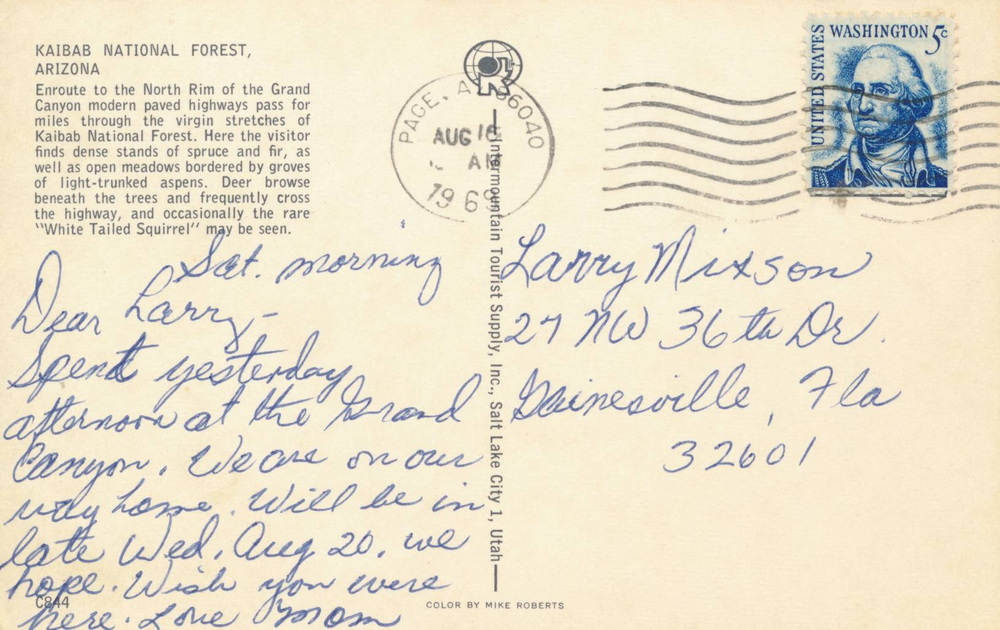 KAIBAB NATIONAL FOREST,
ARIZONA
Enroute to the North Rim of the Grand
Canyon modern paved highways pass for
miles through the virgin stretches of
Kaibab National Forest. Here the visitor
finds dense stands of spruce and fir, as
well as open meadows bordered by groves
of light-trunked aspens. Deer browse
beneath the trees and frequently cross
the highway, and occasionally the rare
"White Tailed Squirrel" may be seen.
Sat. morning
Dear Larry-
Spent yesterday
afternoon at the Grand
Canyon. We are on our
way home. Will be in
late Wed, Aug 20, we
hope. Wish you were
here. Love Mom
C844
PAGE, A 86040
AUG 16
AM
1969
Intermountain Tourist Supply, Inc., Salt Lake City 1, Utah
UNITED STATES
WASHINGTON 5c
Larry Mixson
27 NW 36th Dr.
Gainesville, Fla
32601
COLOR BY MIKE ROBERTS